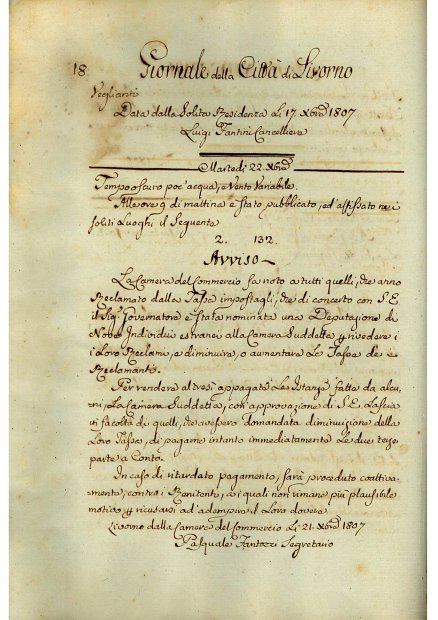 18
Giornale della Città di Livorno
Veglianti
Data dalla Solita Residenza Li 17. Xbre 1807
Luigi Fantini Cancelliere
Martedi 22. Xbre
Tempo oscuro poc'acqua, e Vento Variabile.
Alle ore 9 di mattina è stato pubblicato, ed'affissato nei
soliti Luoghi il Seguente
2. 132.
Avviso
La Camera del Commercio fa noto a tutti quelli, che anno
Reclamato dalla Tassa impostagli, che di concerto con S. E.
il Sig. Governatore è stata nominata una Deputazione di
Nove Individui estranei alla Camera Suddetta per rivedere i
i Loro Reclami, e diminuire, o aumentare Le Tasse dei
Reclamanti.
Per rendere altresì appagate Le Istanze fatte da alcu-
ni, La Camera Suddetta, con approvazione di S. E. Lascia
in facoltà di quelli, che avessero domandata diminuzione della
Loro Tassa, di pagarne intanto immediatamente Le due terze
parte a Conto.
In caso di ritardato pagamento, sarà proceduto coattiva-
mente, contro i Renitenti, a i quali non rimane più plausibile
motivo per ricusarsi ad'adempire il Loro dovere
Livorno dalla Camera del Commercio Li 21. Xbre 1807
Pasquale Fantozzi Segretario